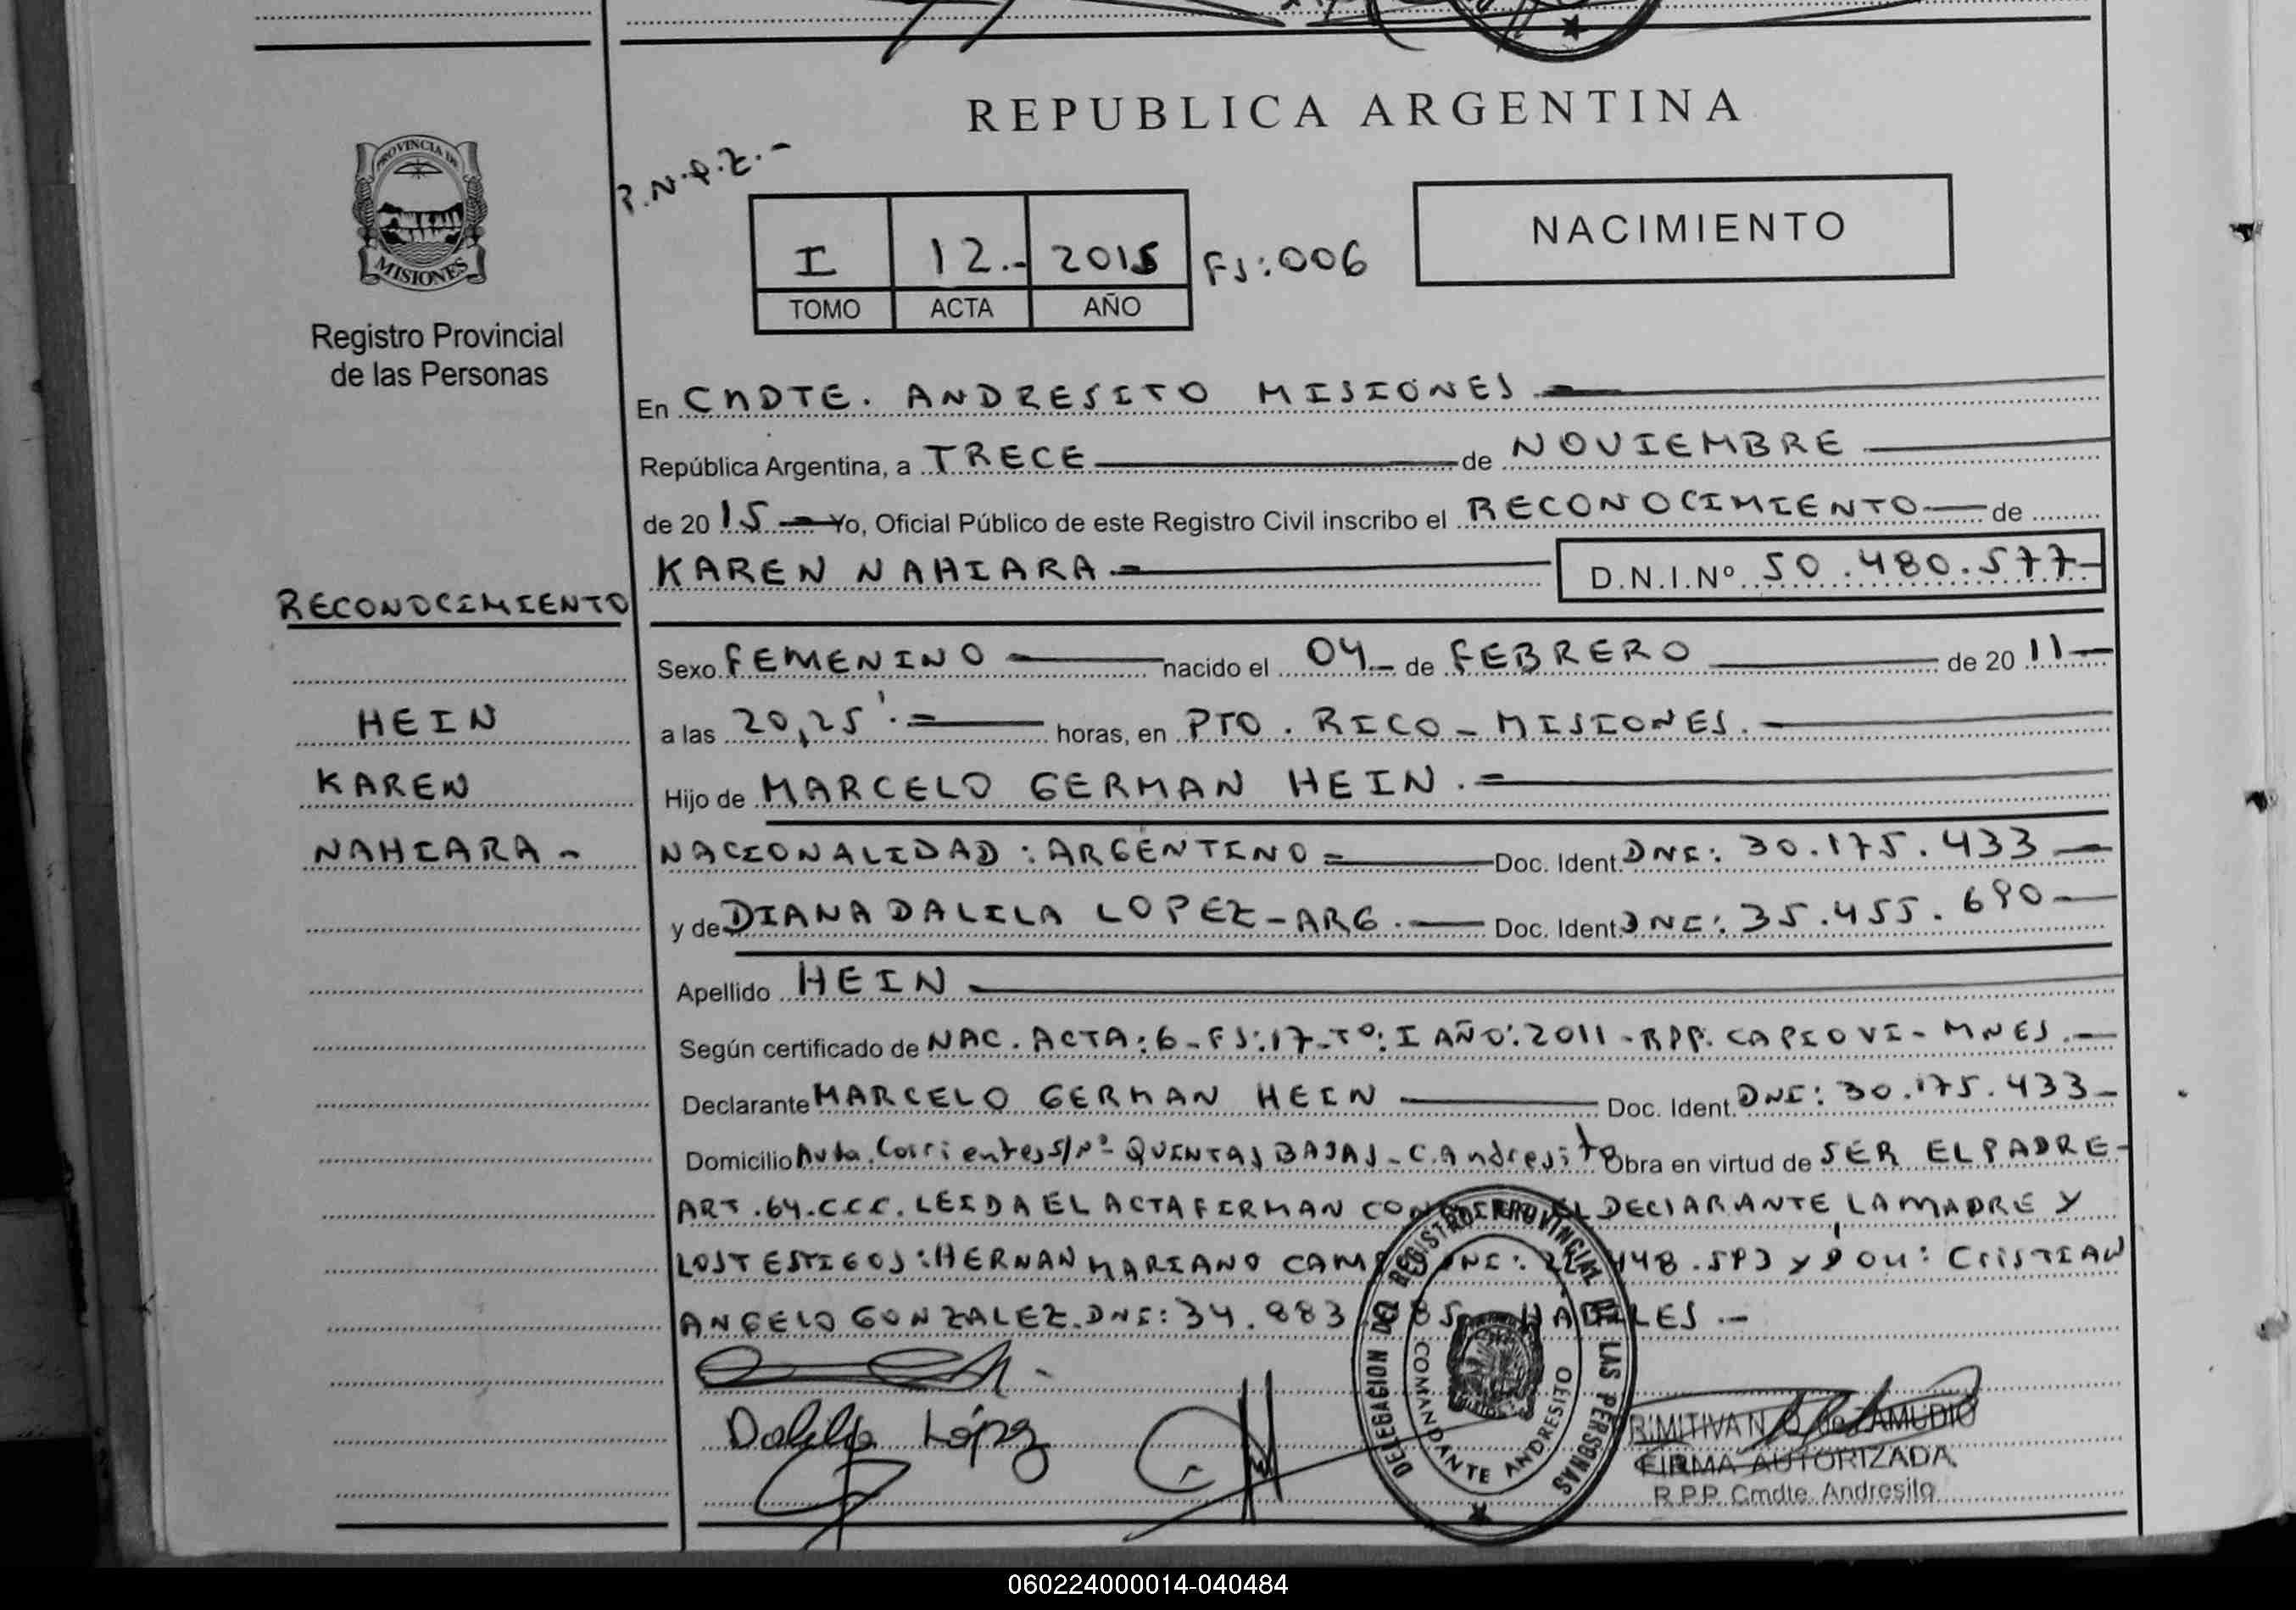 REPUBLICA ARGENTINA
PROVINCIA DE
MISIONES
Registro Provincial
de las Personas
I 12.- 2015 FS:006
TOMO ACTA AÑO
NACIMIENTO
En CMDTE. ANDRESITO MISIONES
República Argentina, a TRECE de NOVIEMBRE
de 20 15 Yo, Oficial Público de este Registro Civil inscribo el RECONOCIMIENTO de
KAREN NAHIARA D.N.I.Nº 50.480.577
RECONOCIMIENTO
HEIN
KAREN
NAHIARA -
Sexo FEMENINO nacido el 04 de FEBRERO de 20 11
a las 20,25' horas, en PTO. RICO - MISIONES.
Hijo de MARCELO GERMAN HEIN.
NACIONALIDAD: ARGENTINO Doc. Ident. DNI: 30.175.433
y de DIANA DALILA LOPEZ - ARG. Doc. Ident DNI: 35.455.690
Apellido HEIN
Según certificado de NAC. ACTA: 6 - FS: 17 - Tº: I AÑO: 2011 - RPP. CAPIOVI - MNES.
Declarante MARCELO GERMAN HEIN Doc. Ident. DNI: 30.175.433
Domicilio Avda. Corrientes S/Nº - QUINTAS BAJAS - C. Andresito Obra en virtud de SER EL PADRE -
ART. 64. C.C.C. LEIDA EL ACTA FIRMAN EL DECLARANTE, LA MADRE Y
LOS TESTIGOS: HERNAN MARIANO DNI: Y CRISTIAN
ANGELO GONZALEZ. DNI: 34.883 HABILES.-
Dalila López
DELEGACION DEL REGISTRO PROVINCIAL DE LAS PERSONAS
COMANDANTE ANDRESITO
ZAMUDIO
FIRMA AUTORIZADA
R.P.P. Cmdte. Andresito
060224000014-040484